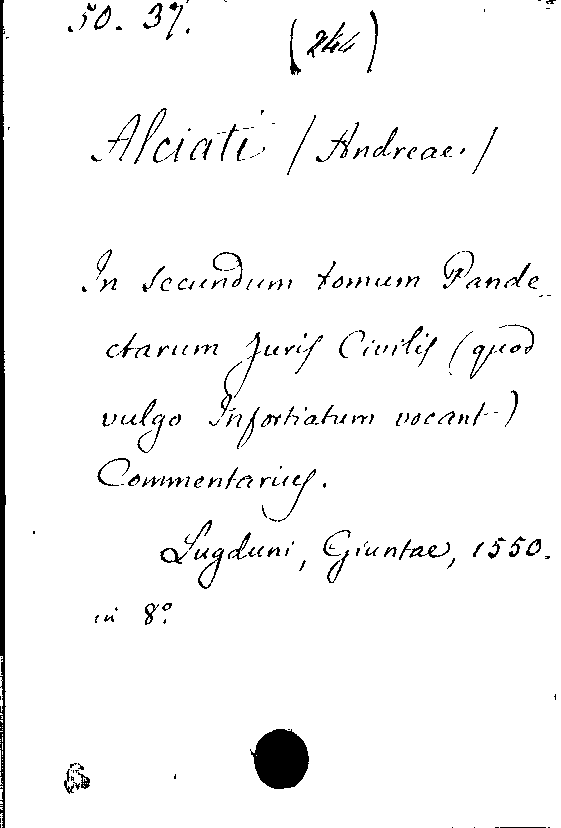 50. 37.
(244)
Alciati / Andreae. /
In secundum tomum Pande_
ctarum Juris Civilis (quod
vulgo Infortiatum vocant)
Commentarius.
Lugduni, Giuntae, 1550.
in 8º.